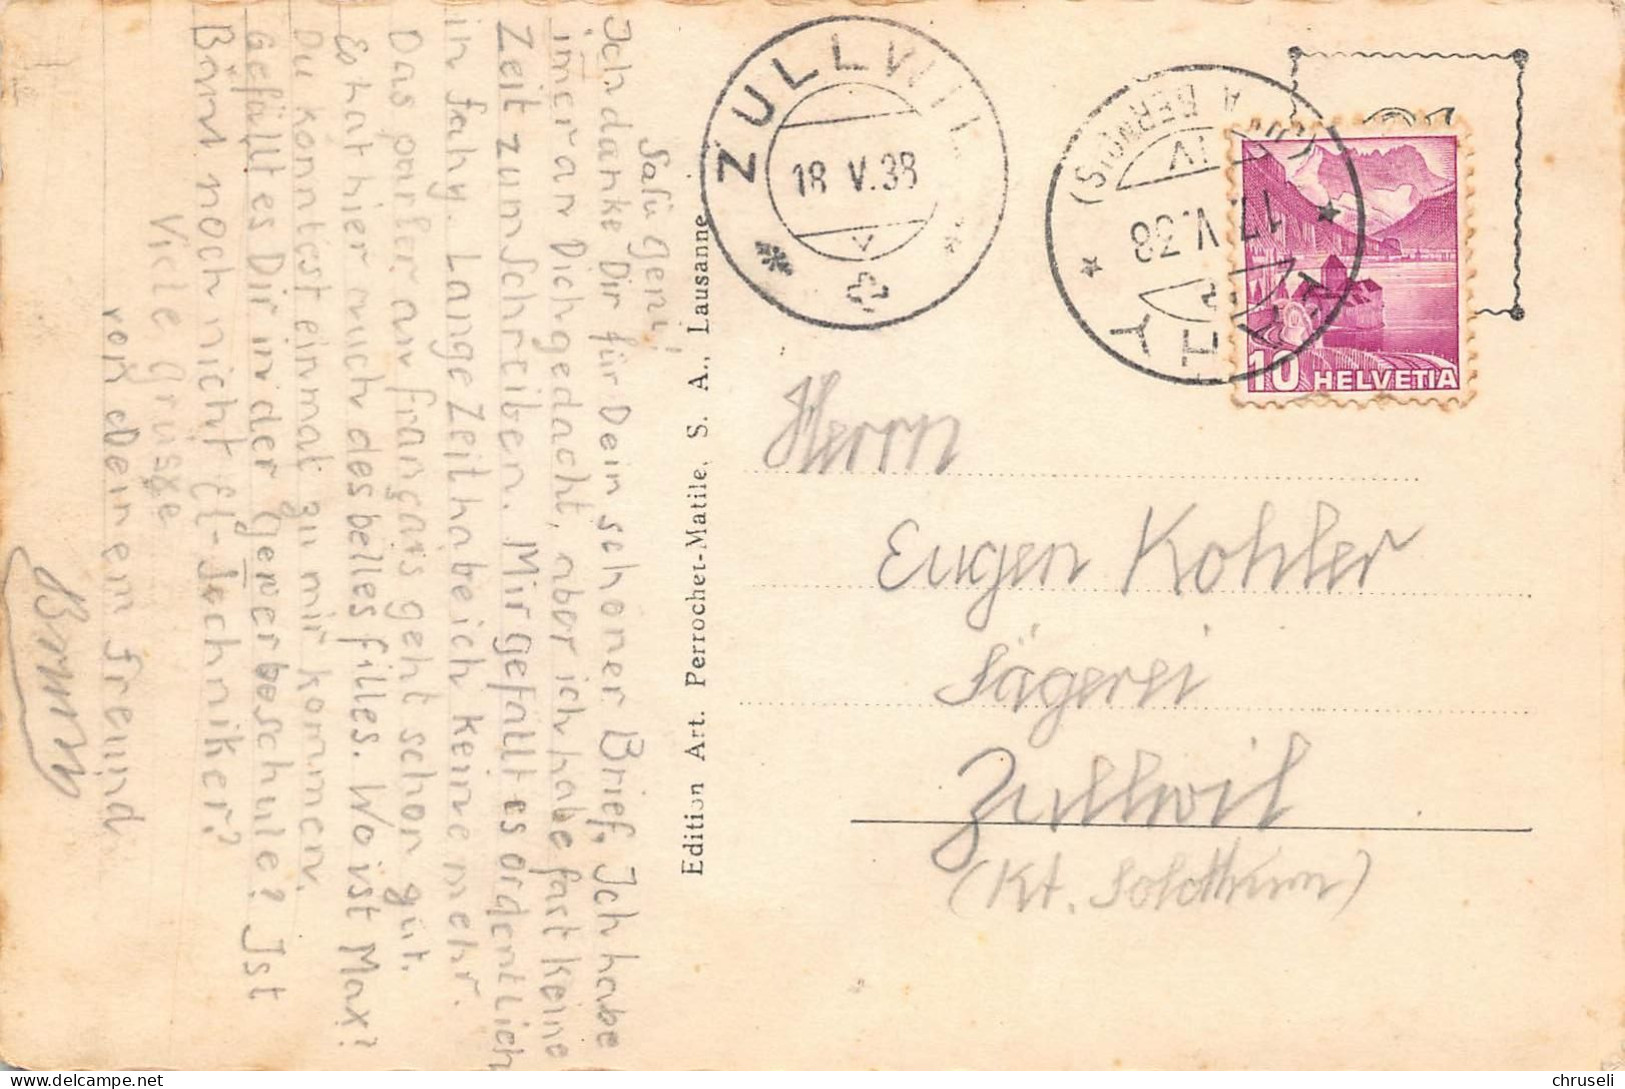 Salü Geni!
Ich danke Dir für Dein schoner Brief, Ich habe
imer an Dich gedacht, aber ich habe fast keine
Zeit zum schreiben. Mir gefällt es ordentlich
in Fahy. Lange Zeit habe ich keine mehr.
Das parler au français geht schon gut.
Es hat hier auch des belles filles. Wo ist Max?
Du konntest einmal zu mir kommen.
Gefällt es Dir in der Gewerbeschule? Ist
noch nicht El-Technicker?
Viele Grüsse
von Deinem Freund
Edition Art. Perrochet-Matile, S. A., Lausanne
ZULLWIL
18 V.38
FAHY
17.V.38
(JURA BERNOIS)
10 HELVETIA
Herrn
Eugen Kohler
Sägerei
Zullwil
(Kt. Solothurn)
chruseli